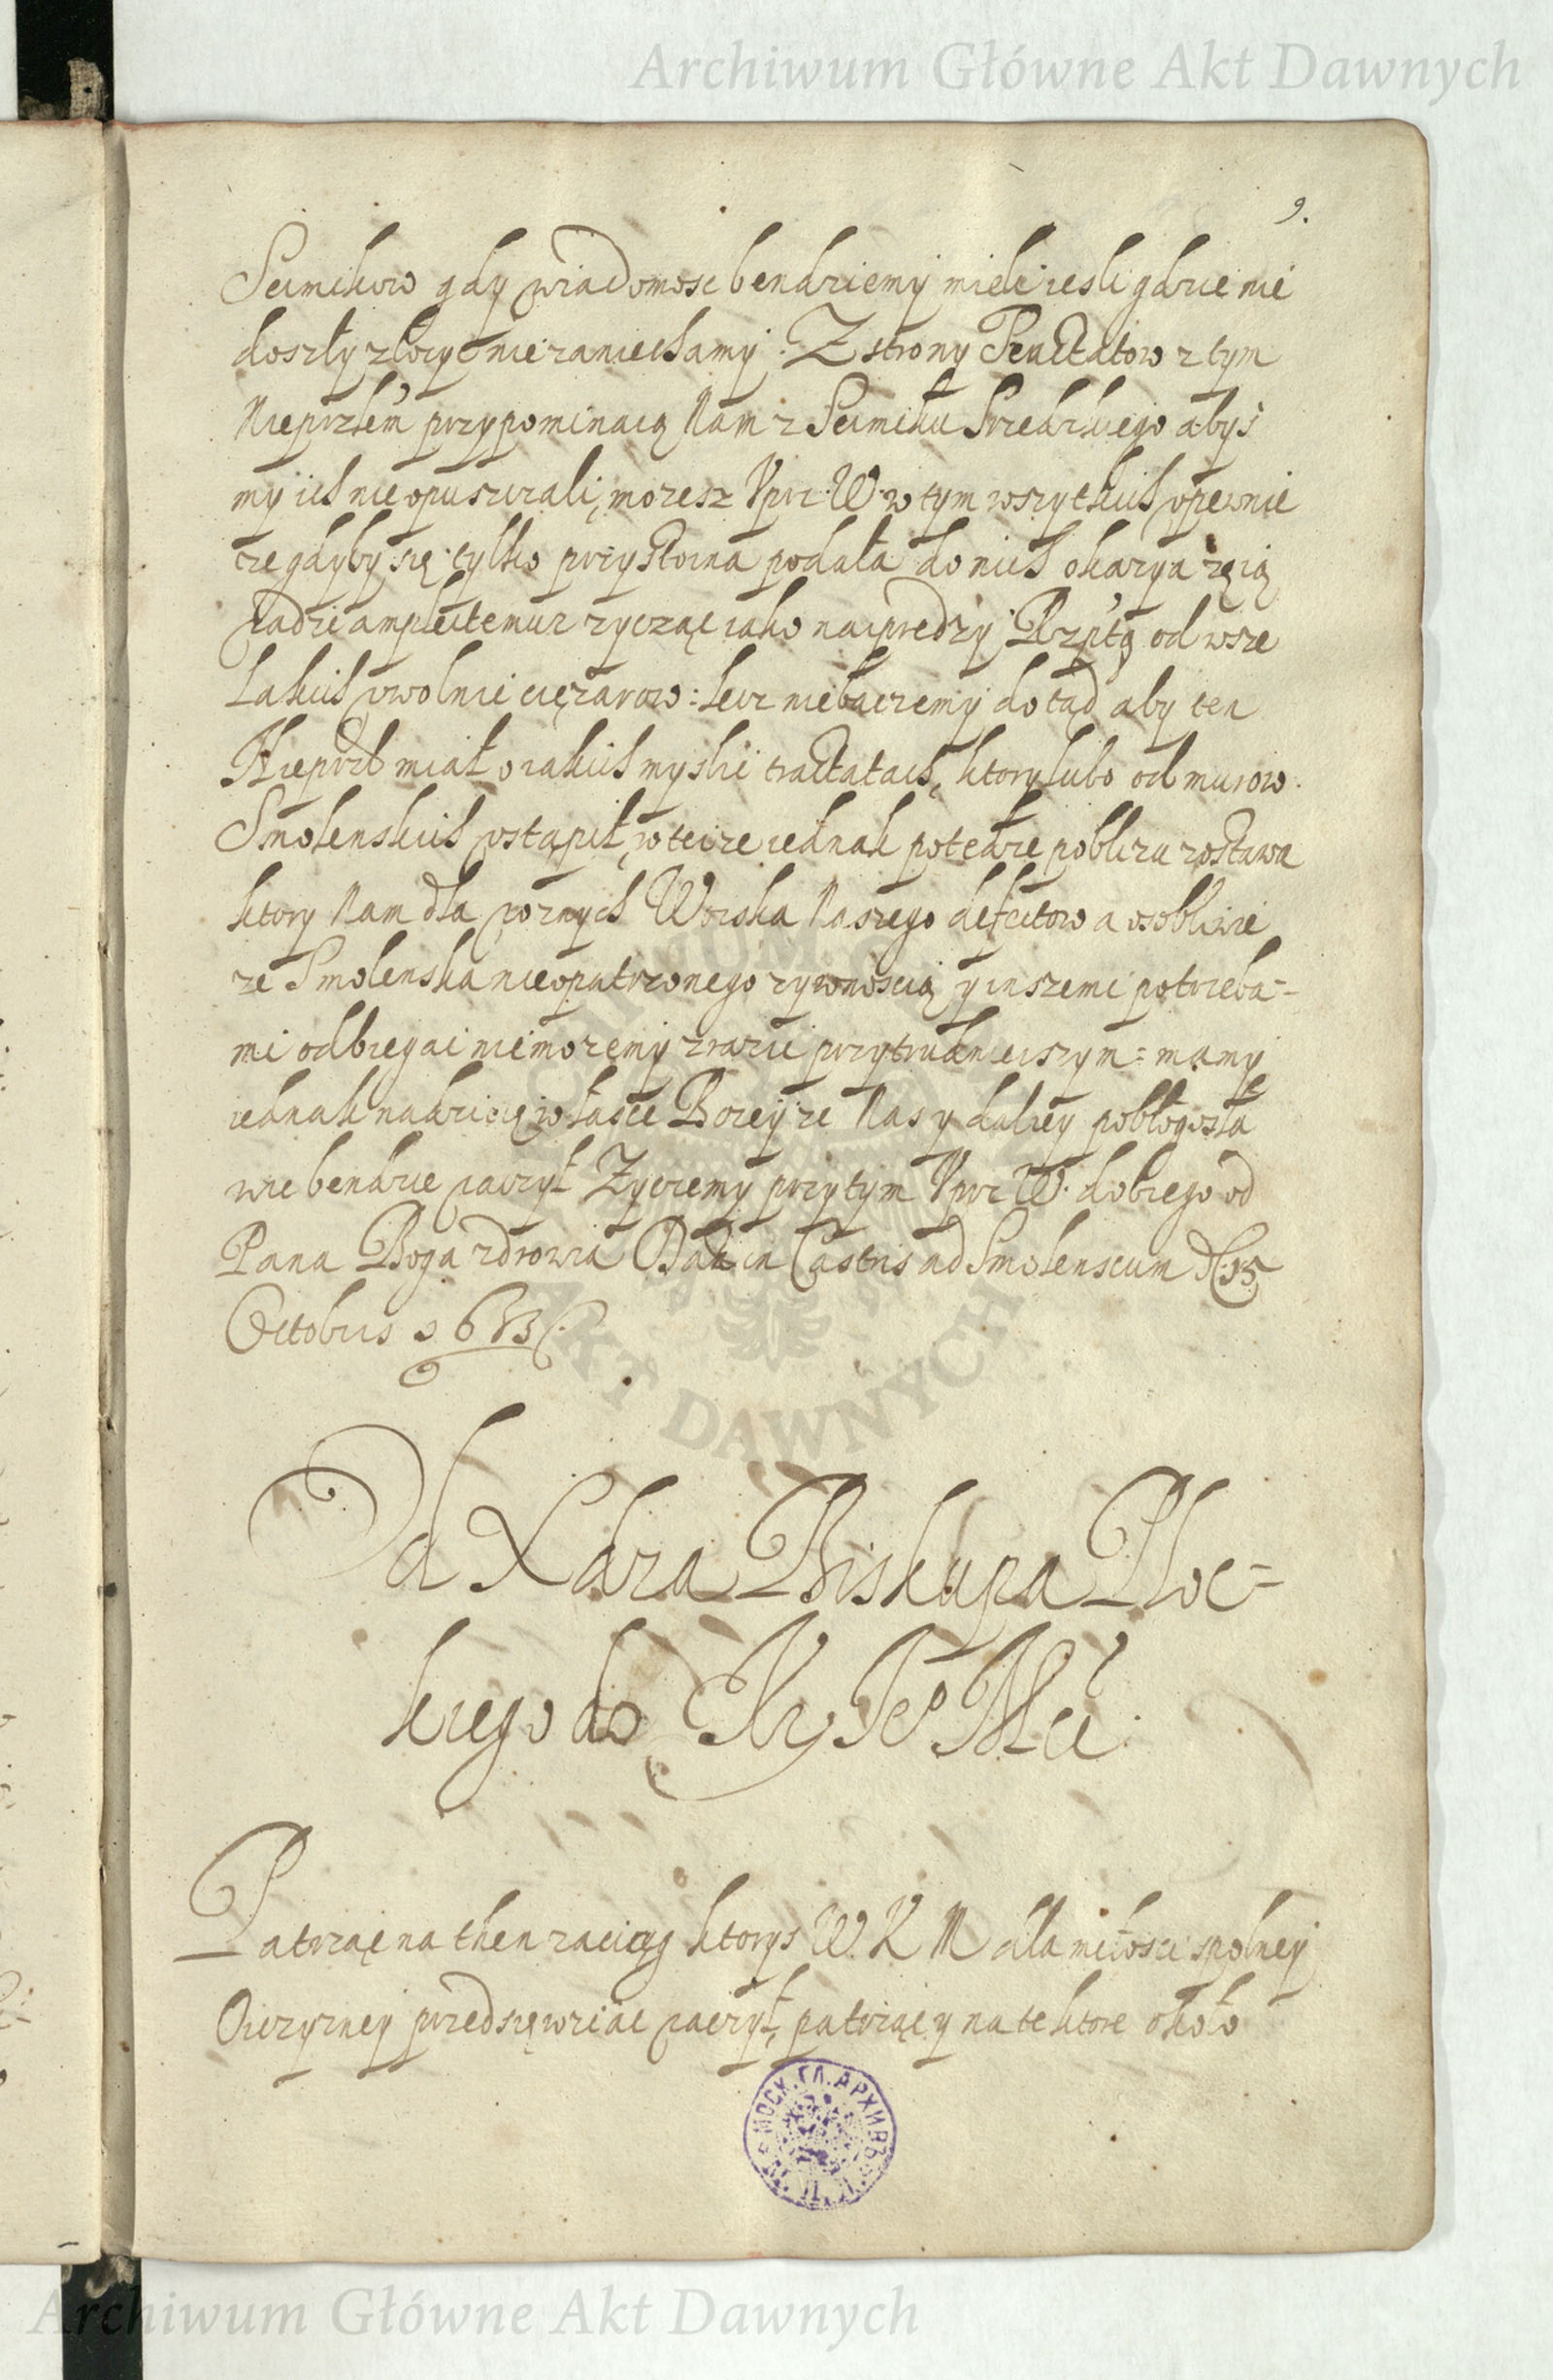 Archiwum Główne Akt Dawnych
9.
Seimikow gdy wiadomosc bendziemy mieli iesli gdzie nie
doszły złozyc nie zaniechamy. Z strony Tractatow z tym
Nieprzlem przypominaią Nam z Seimiku Srzedzkiego abys
my ich nie opuszczali, mozesz Vprz: W. w tym wszytkich vpewnic
ze gdyby się tylko przystoina podała do nich okazya zęią
radzi amplectemur zycząc iako naiprędzy Rzptą od wsze
lakich vwolnic cięzarow: lecz niebaczemy dotąd aby ten
Nieprzl miał o iakich myslic tractatach, ktory lubo od murow
Smolenskich vstąpił, w teize iednak potędze poblizu zostawa
ktory Nam dla roznych Woiska Naszego defectow a osobliwie
ze Smolenska nieopatrzonego zywnoscią y inszemi potrzeba-
mi odbiegac niemozemy zrazu przytrudnieiszym: mamy
iednak nadzieię w łasce Bozey ze Nas y daley pobłogosła
wic bendzie raczył Zyczemy przytym Vprz W. dobrego od
Pana Boga zdrowia Dat in Castris ad Smolenscum D. 15
Octobris 1633.
Od Xdza Biskupa Ploc-
kiego do Kr Je° Mci
Patrząc na then zaciąg ktorys W. K M dla miłosci spolney
Oiczyzney przedsięwziac raczył, patrząc y na te ktore około
МОСК. ГЛ. АРХИВЪ
AKT DAWNYCH
Archiwum Główne Akt Dawnych